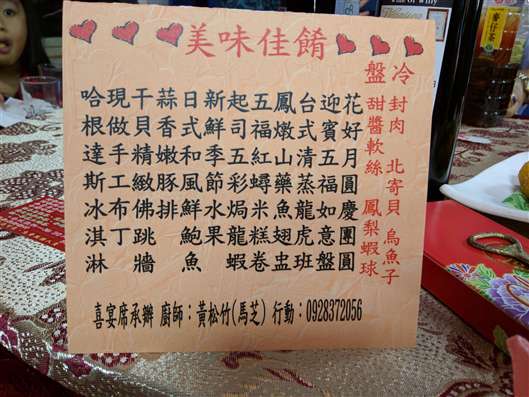 美味佳餚
冷盤
封肉 北寄貝 烏魚子
甜醬軟絲 鳳梨蝦球
花好月圓慶團圓
迎賓五福如意盤
台式清蒸龍虎班
鳳燉山藥魚翅盅
五福紅蟳米糕卷
起司五彩焗龍蝦
新鮮季節水果
日式和風鮮鮑魚
蒜香嫩豚排
干貝精緻佛跳牆
現做手工布丁
哈根達斯冰淇淋
喜宴席承辦 廚師：黃松竹(馬芝) 行動：0928372056
麥仔茶